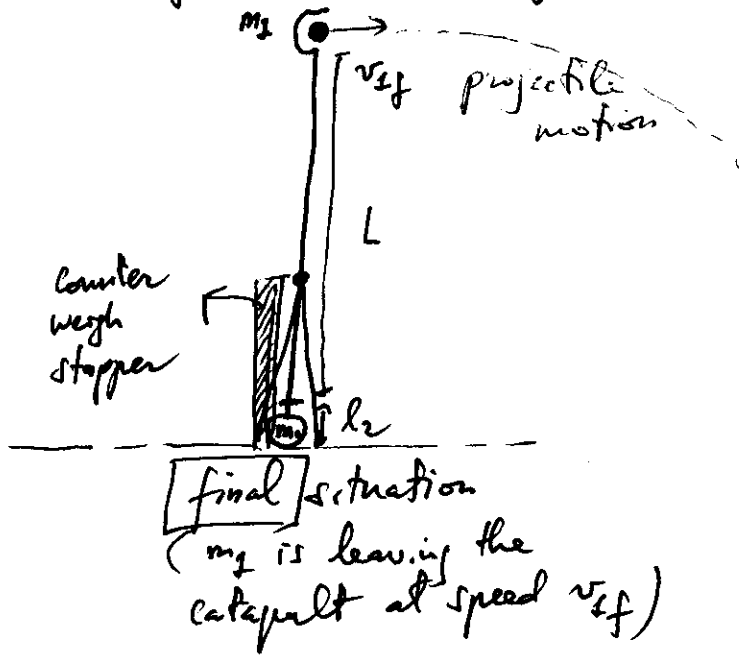 m1
v1f
projectile
motion
L
counter
weigh
stopper
m2
l2
final situation
(m1 is leaving the
catapult at speed v1f)